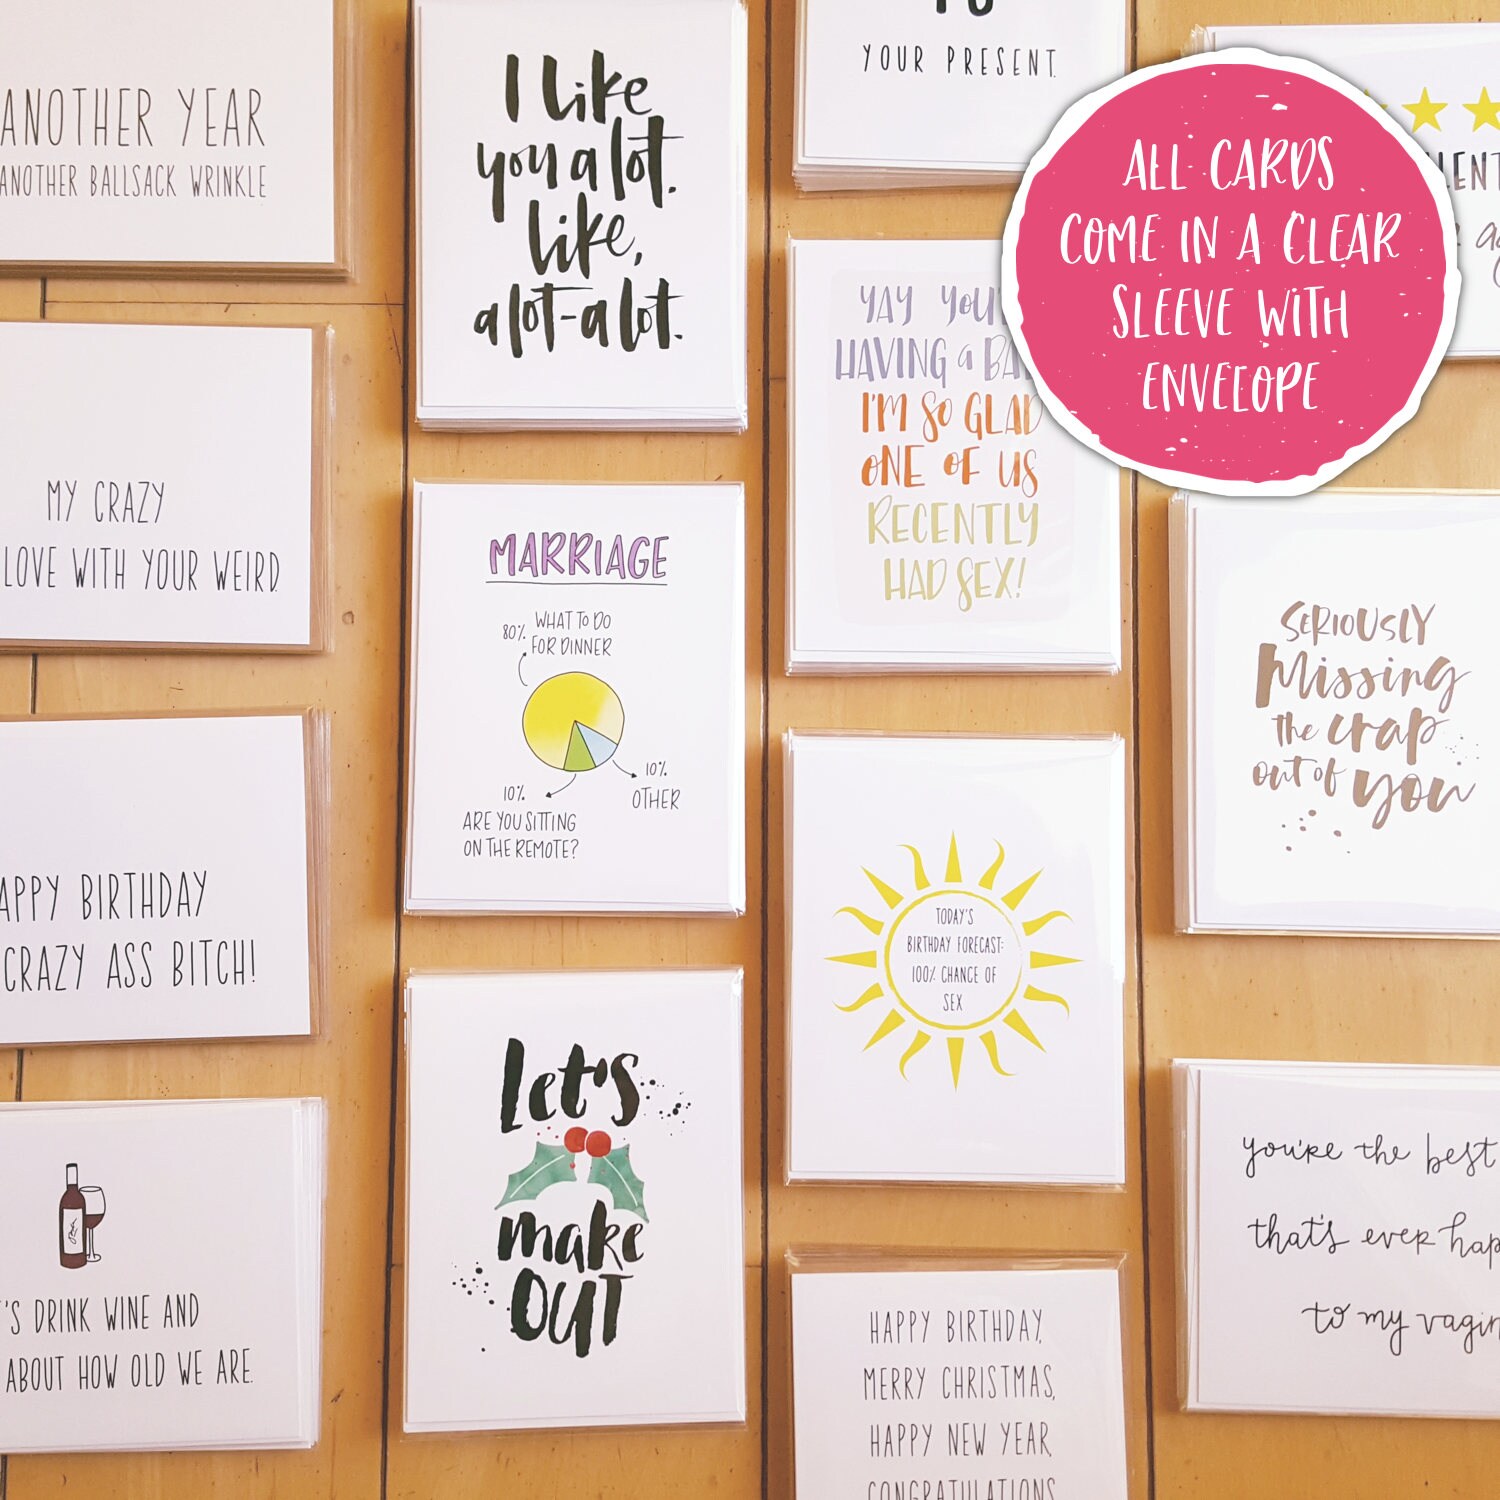 ANOTHER YEAR
ANOTHER BALLSACK WRINKLE
MY CRAZY
LOVE WITH YOUR WEIRD.
BIRTHDAY
CRAZY ASS BITCH!
DRINK WINE AND
ABOUT HOW OLD WE ARE.
I like
you a lot.
like,
a lot-a lot.
MARRIAGE
80% WHAT TO DO
FOR DINNER
10%
OTHER
10%
ARE YOU SITTING
ON THE REMOTE?
Let's
make
OUT
YOUR PRESENT.
YAY
HAVING a
I'M SO GLAD
ONE OF US
RECENTLY
HAD SEX!
TODAY'S
BIRTHDAY FORECAST:
100% CHANCE OF
SEX
HAPPY BIRTHDAY,
MERRY CHRISTMAS,
HAPPY NEW YEAR,
CONGRATULATIONS
ALL CARDS
COME IN A CLEAR
SLEEVE WITH
ENVELOPE
SERIOUSLY
Missing
the crap
out of you
you're the best
that's ever
to my